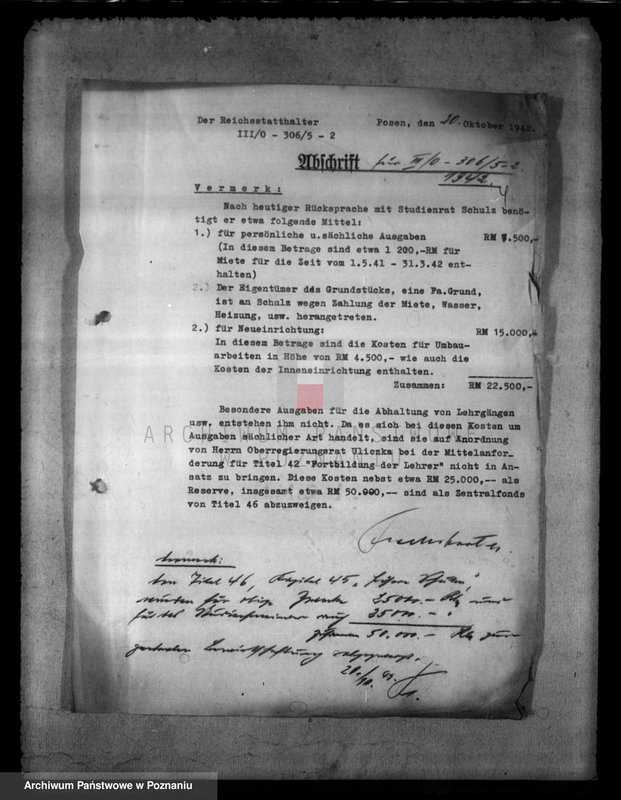 Der Reichsstatthalter Posen, den 20. Oktober 1942.
III/O - 306/5 - 2
Abschrift für III/O - 306/5-2
1942.
Vermerk:
Nach heutiger Rücksprache mit Studienrat Schulz benö-
tigt er etwa folgende Mittel:
1.) für persönliche u.sächliche Ausgaben RM 7.500,-
(In diesem Betrage sind etwa 1 200,-RM für
Miete für die Zeit vom 1.5.41 - 31.3.42 ent-
halten)
2.) Der Eigentümer des Grundstücks, eine Fa.Grund,
ist an Schulz wegen Zahlung der Miete, Wasser,
Heizung, usw. herangetreten.
2.) für Neueinrichtung: RM 15.000,-
In diesem Betrage sind die Kosten für Umbau-
arbeiten in Höhe von RM 4.500,- wie auch die
Kosten der Inneneinrichtung enthalten.
Zusammen: RM 22.500,-
Besondere Ausgaben für die Abhaltung von Lehrgängen
usw. entstehen ihm nicht. Da es sich bei diesen Kosten um
Ausgaben sächlicher Art handelt, sind sie auf Anordnung
von Herrn Oberregierungsrat Uliczka bei der Mittelanfor_
derung für Titel 42 "Fortbildung der Lehrer" nicht in An-
satz zu bringen. Diese Kosten nebst etwa RM 25.000,-- als
Reserve, insgesamt etwa RM 50.000,-- sind als Zentralfonds
von Titel 46 abzuzweigen.
Vermerk:
Von Titel 46, Kapitel 45, "Höhere Schulen"
für obige Zwecke
50.000.-
zentralen Bewirtschaftung
20./10.
Archiwum Państwowe w Poznaniu